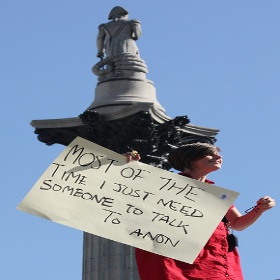 MOST OF THE
TIME I JUST NEED
SOMEONE TO TALK
TO ANON